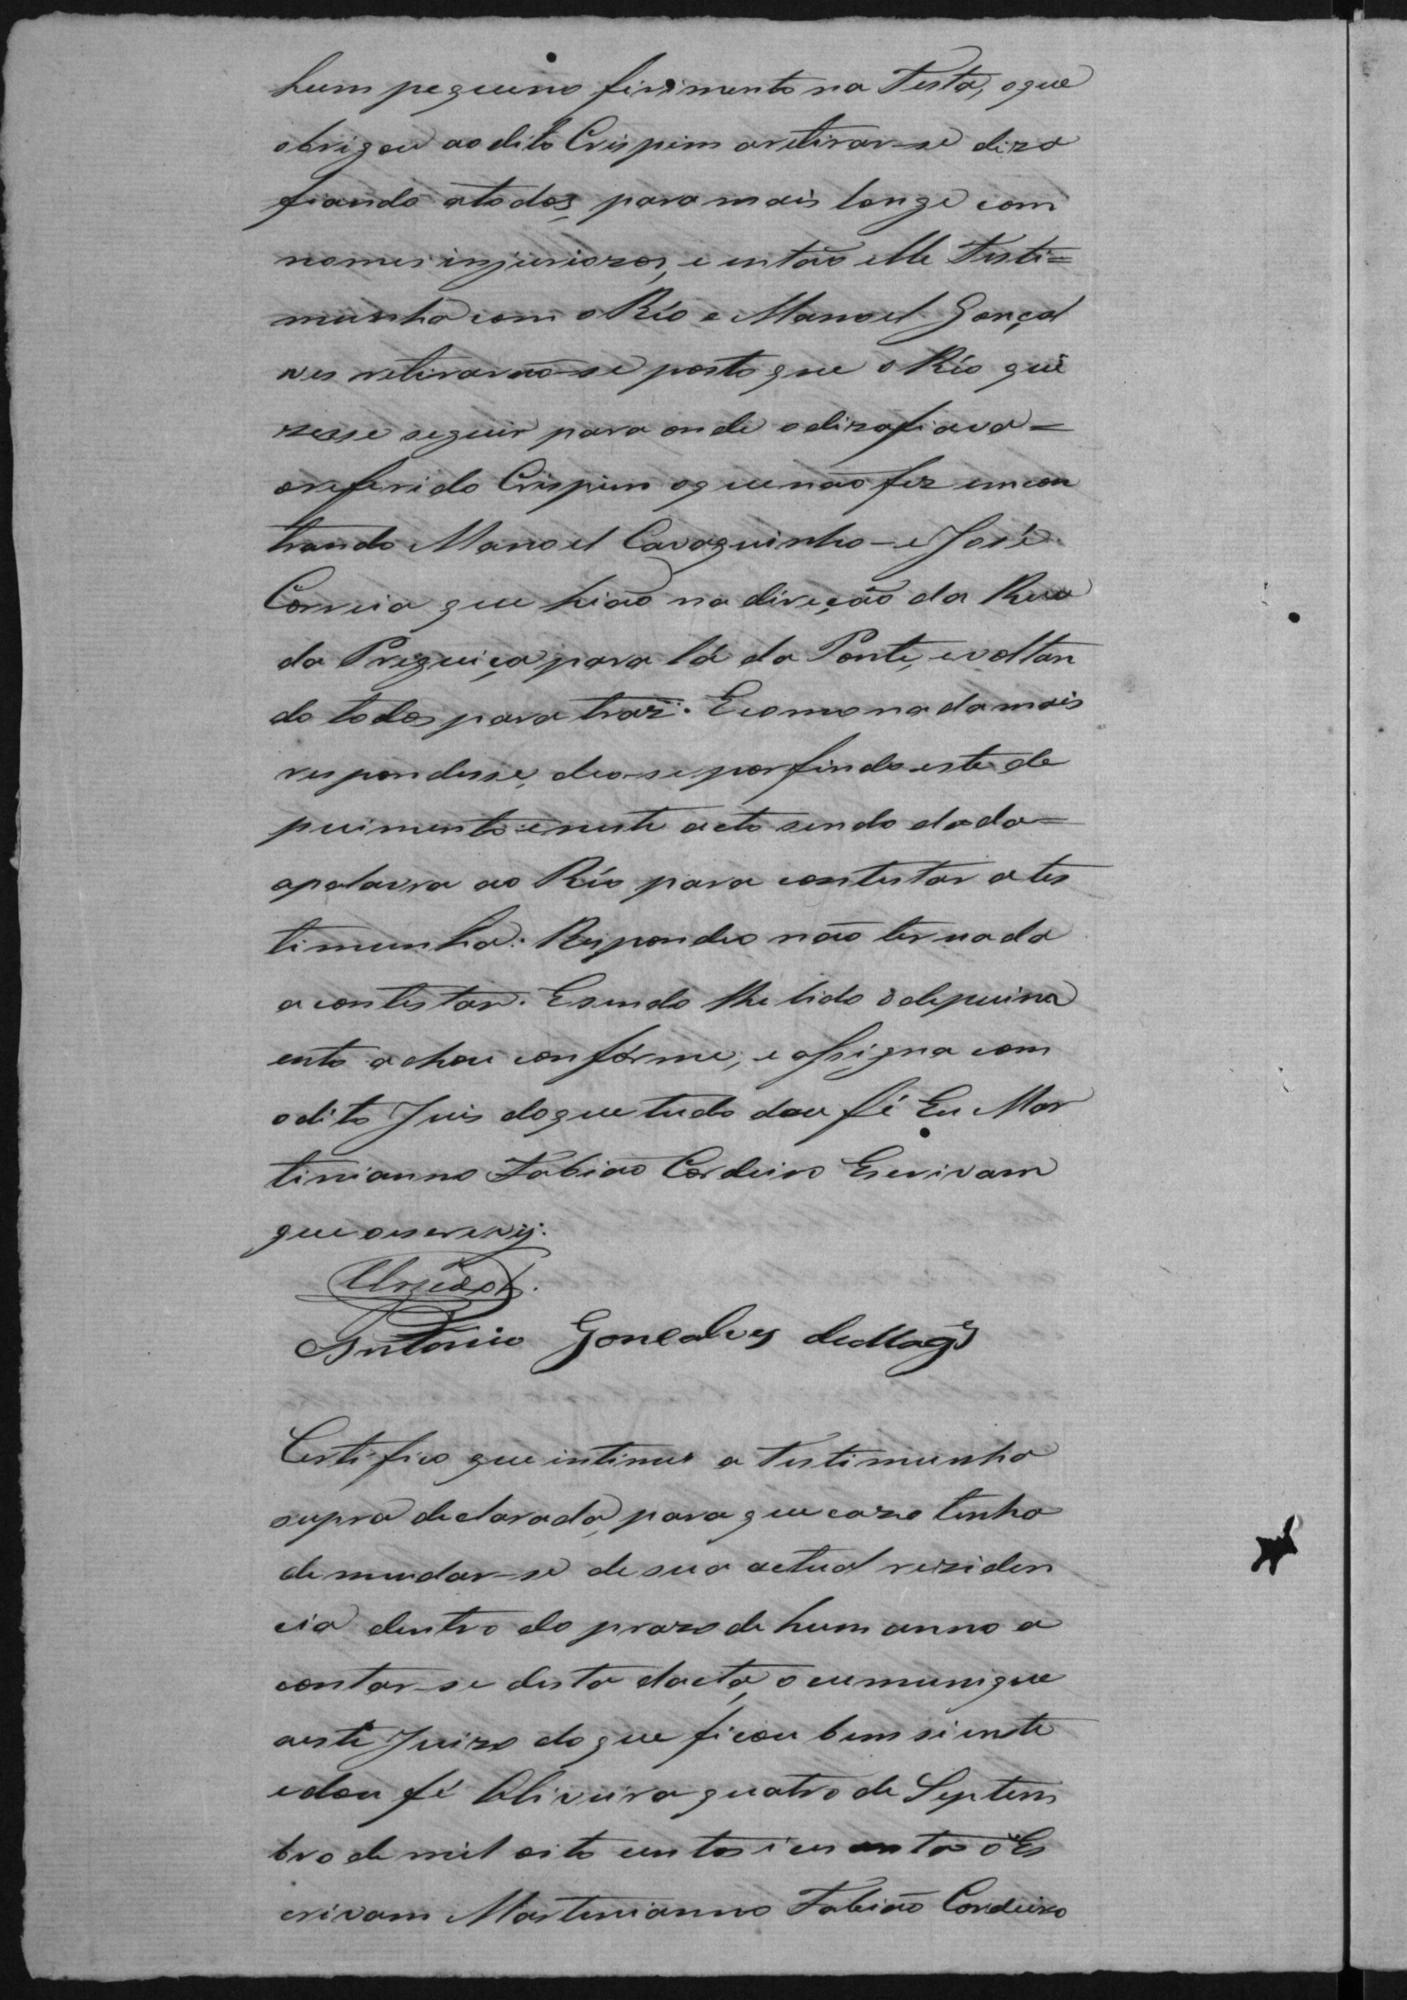 hum pequeno firimento na Testa, o que
obrigou ao dito Crispim a retirar-se diza
fiando a todos, para mais longe com
nomes injuriozos, e então elle Testi=
munha com o Réo e Manoel Gonçal
ves retirarão-se posto que o Réo qui
zesse seguir para onde o dizafiava=
o referido Crispim o que não fez emcon
trando Manoel Cavaquinho e José
Correia que hião na direção da Rua
da Preguiça para lá da Ponte, e voltan
do todos para traz. E como nada mais
respondesse, deo-se por findo este de
puimento e neste acto sendo dada=
a palavra ao Réo para contestar a tes
timunha: Respondeo não ter nada
a contestar. E sendo lhe lido o depuim
ento achou confórme, e assigna com
o dito Juis do que tudo dou fé Eu Mar
tinianno Fabião Cordeiro Escrivam
que o escrevij.
Antonio Gonçalves de Mag.es
Certifico que intimei a Testimunha
supra declarada, para que cazo tenha
de mudar-se de sua actual reziden
cia dentro do prazo de hum anno a
contar-se desta dacta, o cumunique
a este Juizo do que ficou bem siente
e dou fé Oliveira quatro de Septem
bro de mil oito centos e o Es
crivam Martinianno Fabião Cordeiro